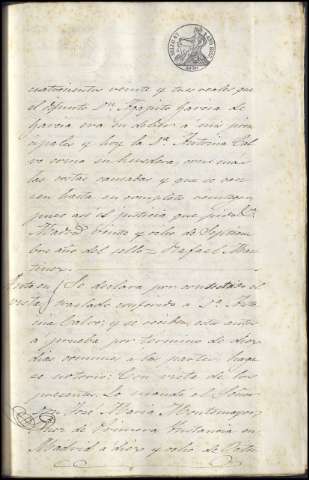 cuatrocientos veinte y tres reales que
el difunto Dn. Agapito Garcia de
Garcia era en deber a mis prin
cipales y hoy la Da. Antonia Cal
vo como su heredera, con mas
las costas causadas y que se cau
sen hasta su completo reintegro,
pues asi es justicia que pido.
Madrid veinte y ocho de Septiem
bre año del sello = Rafael Mar
tinez.
Auto en Se declara por contestado el
vista traslado conferido a Da. Anto
nia Calvo; y se reciben estos autos
a prueba por termino de diez
dias comunes a las partes; haga
se notorio: Con vista de los
presentes. Lo mando el Señor
Dn. Jose Maria Montemayor
Juez de primera Instancia en
Madrid a diez y ocho de Octu